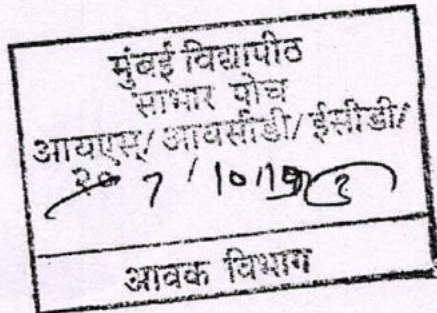 मुंबई विद्यापीठ
साभार पोच
आयएस/ आयसीडी/ ईसीडी/
7 / 10/19
आवक विभाग